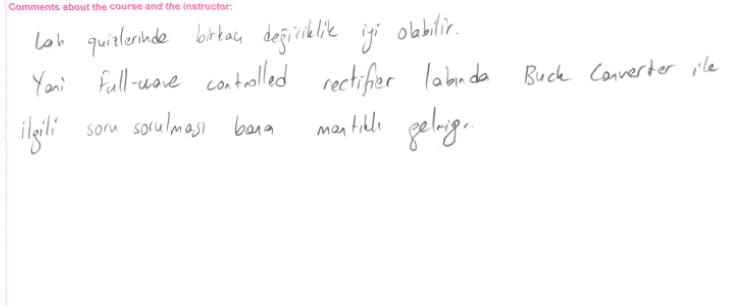 Comments about the course and the instructor:
Lab quizlerinde birkaç değişiklik iyi olabilir.
Yani Full-wave controlled rectifier labında Buck Converter ile
ilgili soru sorulması bana mantıklı gelmiyor.